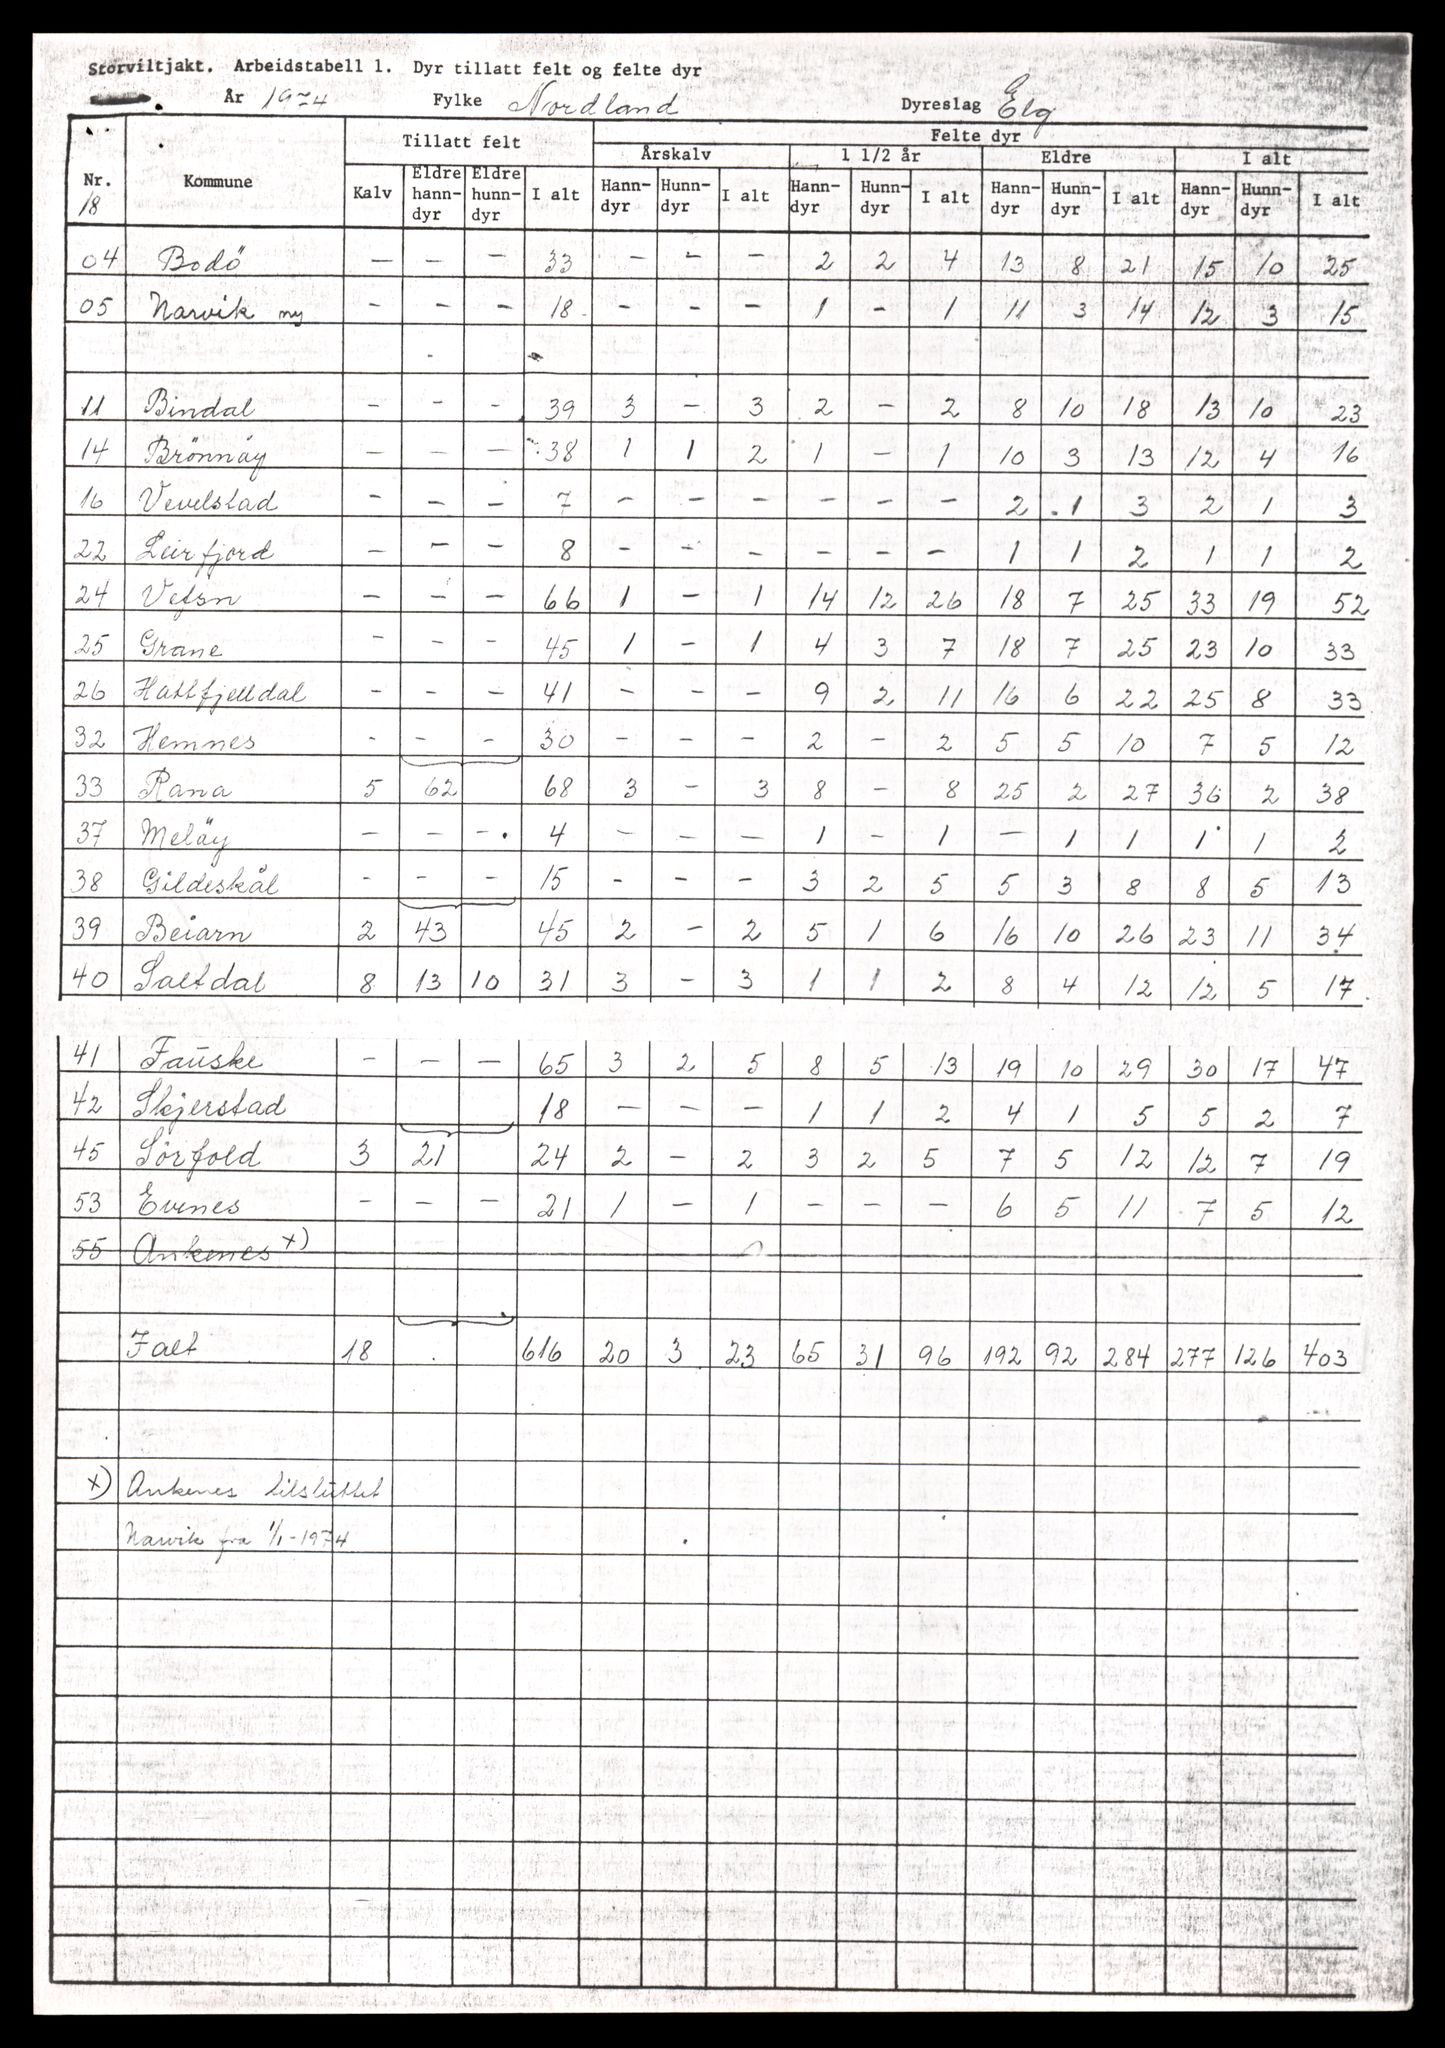 Storviltjakt. Arbeidstabell 1. Dyr tillatt felt og felte dyr
År 1974 Fylke Nordland Dyreslag Elg
Tillatt felt Felte dyr
Årskalv 1 1/2 år Eldre I alt
Nr. 18 Kommune Kalv Eldre hann-dyr Eldre hunn-dyr I alt Hann-dyr Hunn-dyr I alt Hann-dyr Hunn-dyr I alt Hann-dyr Hunn-dyr I alt Hann-dyr Hunn-dyr I alt
04 Bodö — — — 33 — — — 2 2 4 13 8 21 15 10 25
05 Narvik ny — — — 18 — — — 1 — 1 11 3 14 12 3 15
11 Bindal — — — 39 3 — 3 2 — 2 8 10 18 13 10 23
14 Brönnöy — — — 38 1 1 2 1 — 1 10 3 13 12 4 16
16 Vevelstad — — — 7 — — — — — — 2 1 3 2 1 3
22 Leirfjord — — — 8 — — — — — — 1 1 2 1 1 2
24 Vefsn — — — 66 1 — 1 14 12 26 18 7 25 33 19 52
25 Grane — — — 45 1 — 1 4 3 7 18 7 25 23 10 33
26 Hattfjelldal — — — 41 — — — 9 2 11 16 6 22 25 8 33
32 Hemnes — — — 30 — — — 2 — 2 5 5 10 7 5 12
33 Rana 5 62 68 3 — 3 8 — 8 25 2 27 36 2 38
37 Melöy — — — 4 — — — 1 — 1 — 1 1 1 1 2
38 Gildeskål — — — 15 — — — 3 2 5 5 3 8 8 5 13
39 Beiarn 2 43 45 2 — 2 5 1 6 16 10 26 23 11 34
40 Saltdal 8 13 10 31 3 — 3 1 1 2 8 4 12 12 5 17
41 Fauske — — — 65 3 2 5 8 5 13 19 10 29 30 17 47
42 Skjerstad 18 — — — 1 1 2 4 1 5 5 2 7
45 Sörfold 3 21 24 2 — 2 3 2 5 7 5 12 12 7 19
53 Evenes — — — 21 1 — 1 — — — 6 5 11 7 5 12
55 Ankenes x)
Ialt 18 616 20 3 23 65 31 96 192 92 284 277 126 403
x) Ankenes tilsluttet
Narvik fra 1/1-1974